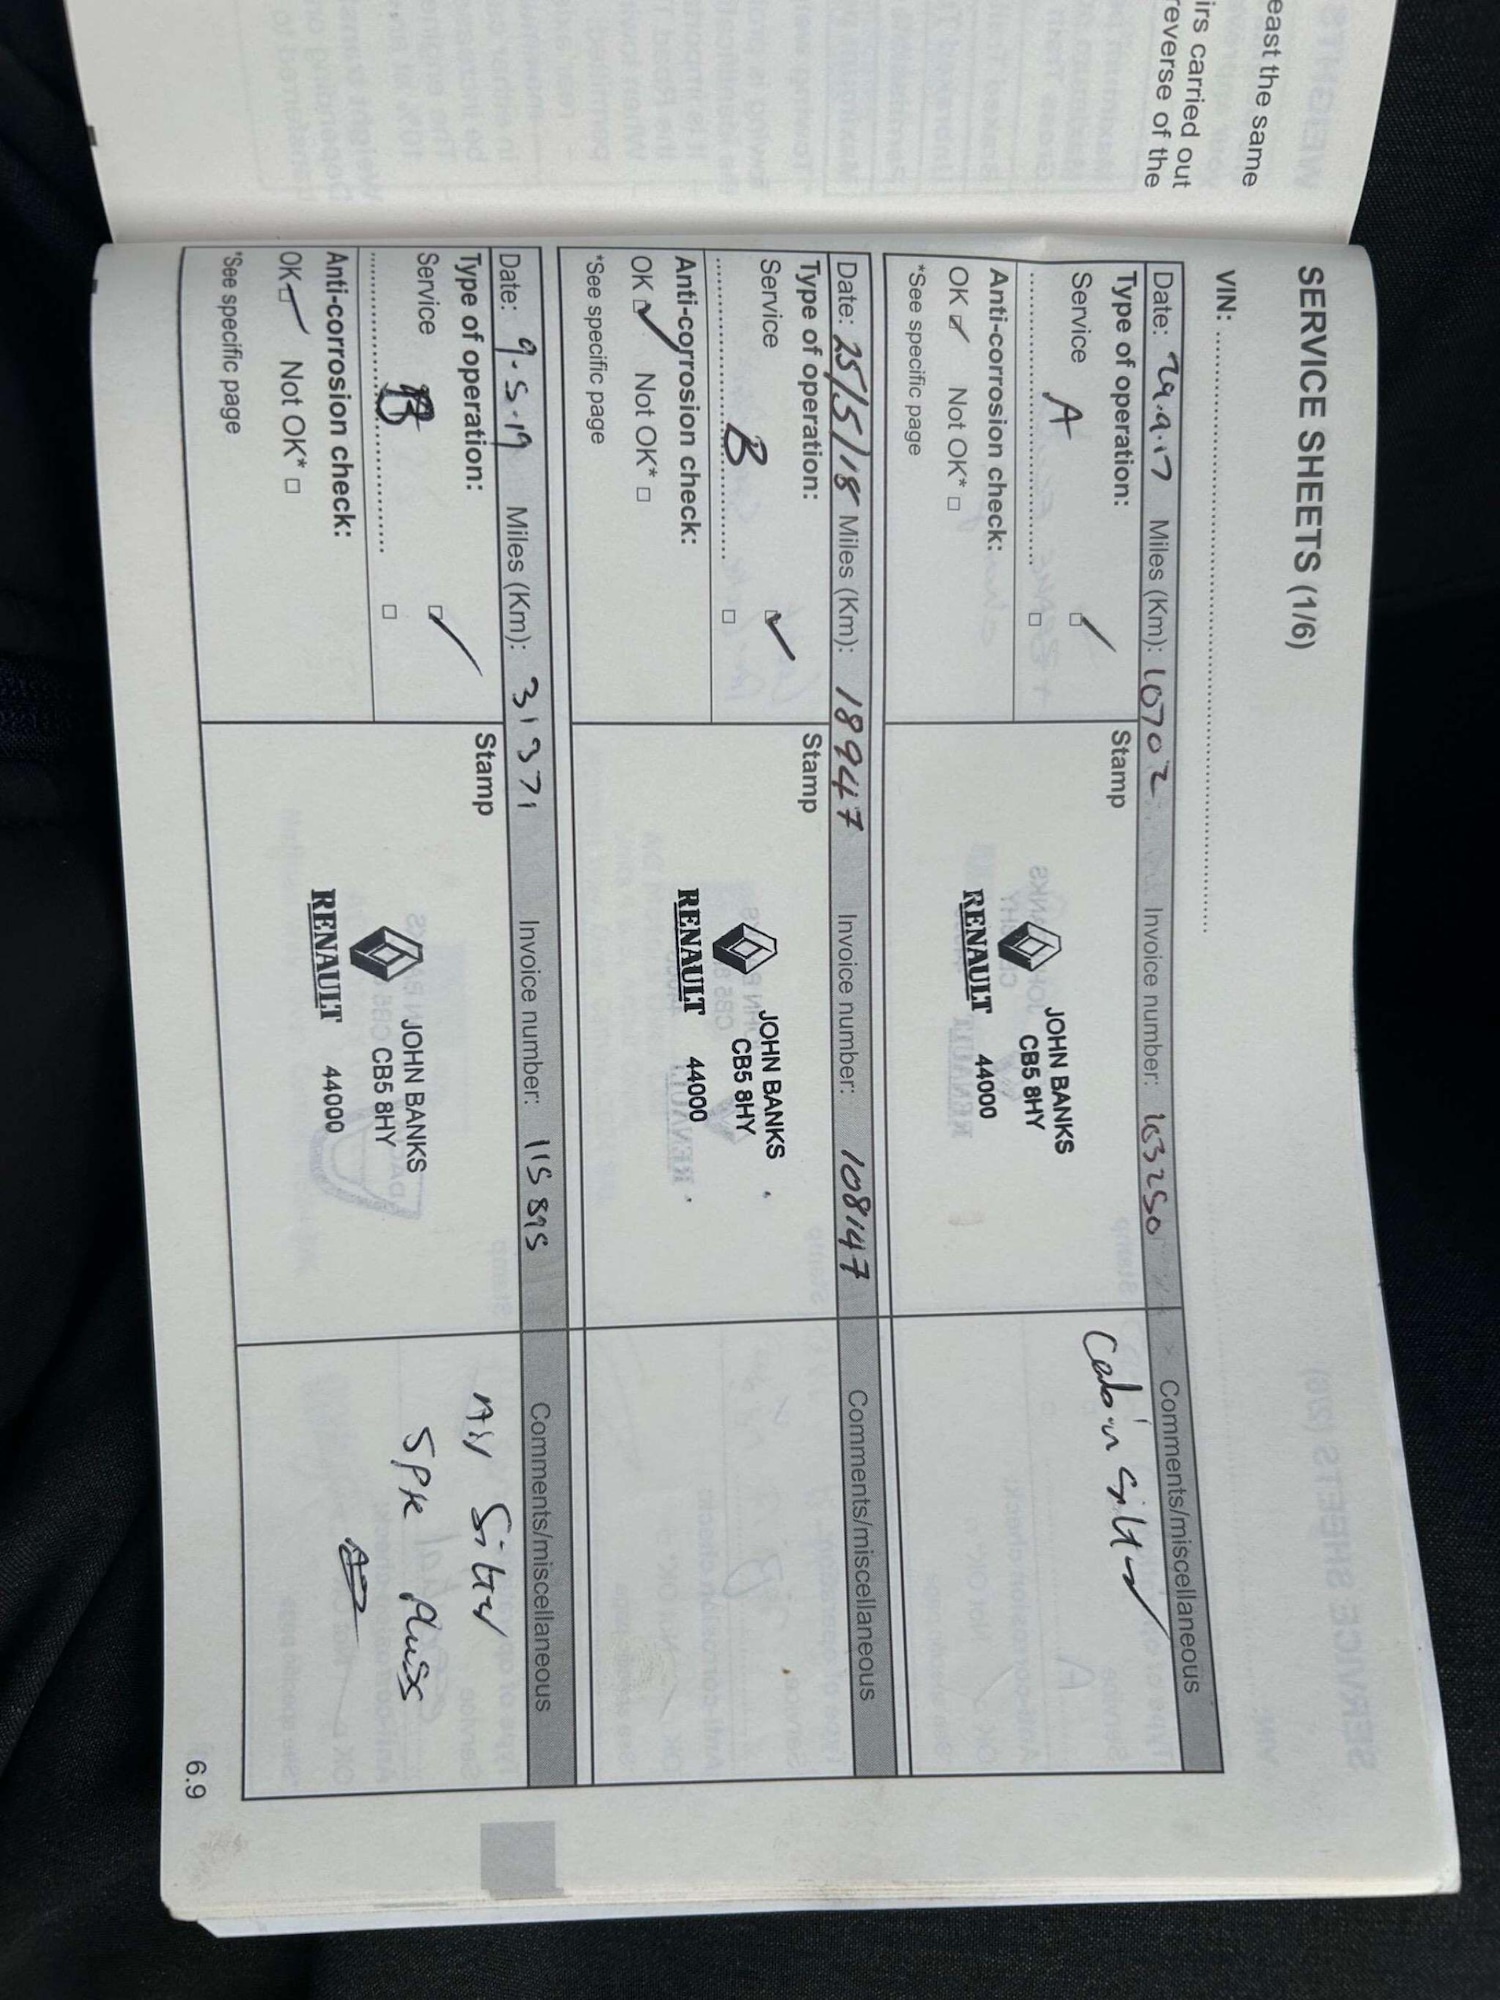 east the same
irs carried out
reverse of the
SERVICE SHEETS (1/6)
VIN: ..........................................................
Date: 29.9.17 Miles (Km): 10702 Invoice number: 103250 Comments/miscellaneous
Type of operation: Stamp
Service A ☑
.............................. □
Anti-corrosion check:
OK ☑ Not OK* □
*See specific page
JOHN BANKS
CB5 8HY
RENAULT 44000
Cabin filter
Date: 25/5/18 Miles (Km): 18947 Invoice number: 108147 Comments/miscellaneous
Type of operation: Stamp
Service B ☑
.............................. □
Anti-corrosion check:
OK ☑ Not OK* □
*See specific page
JOHN BANKS
CB5 8HY
RENAULT 44000
Date: 9.5.19 Miles (Km): 31371 Invoice number: 115895 Comments/miscellaneous
Type of operation: Stamp
Service B ☑
.............................. □
Anti-corrosion check:
OK ☑ Not OK* □
*See specific page
JOHN BANKS
CB5 8HY
RENAULT 44000
Air filter
Spk Plugs
6.9